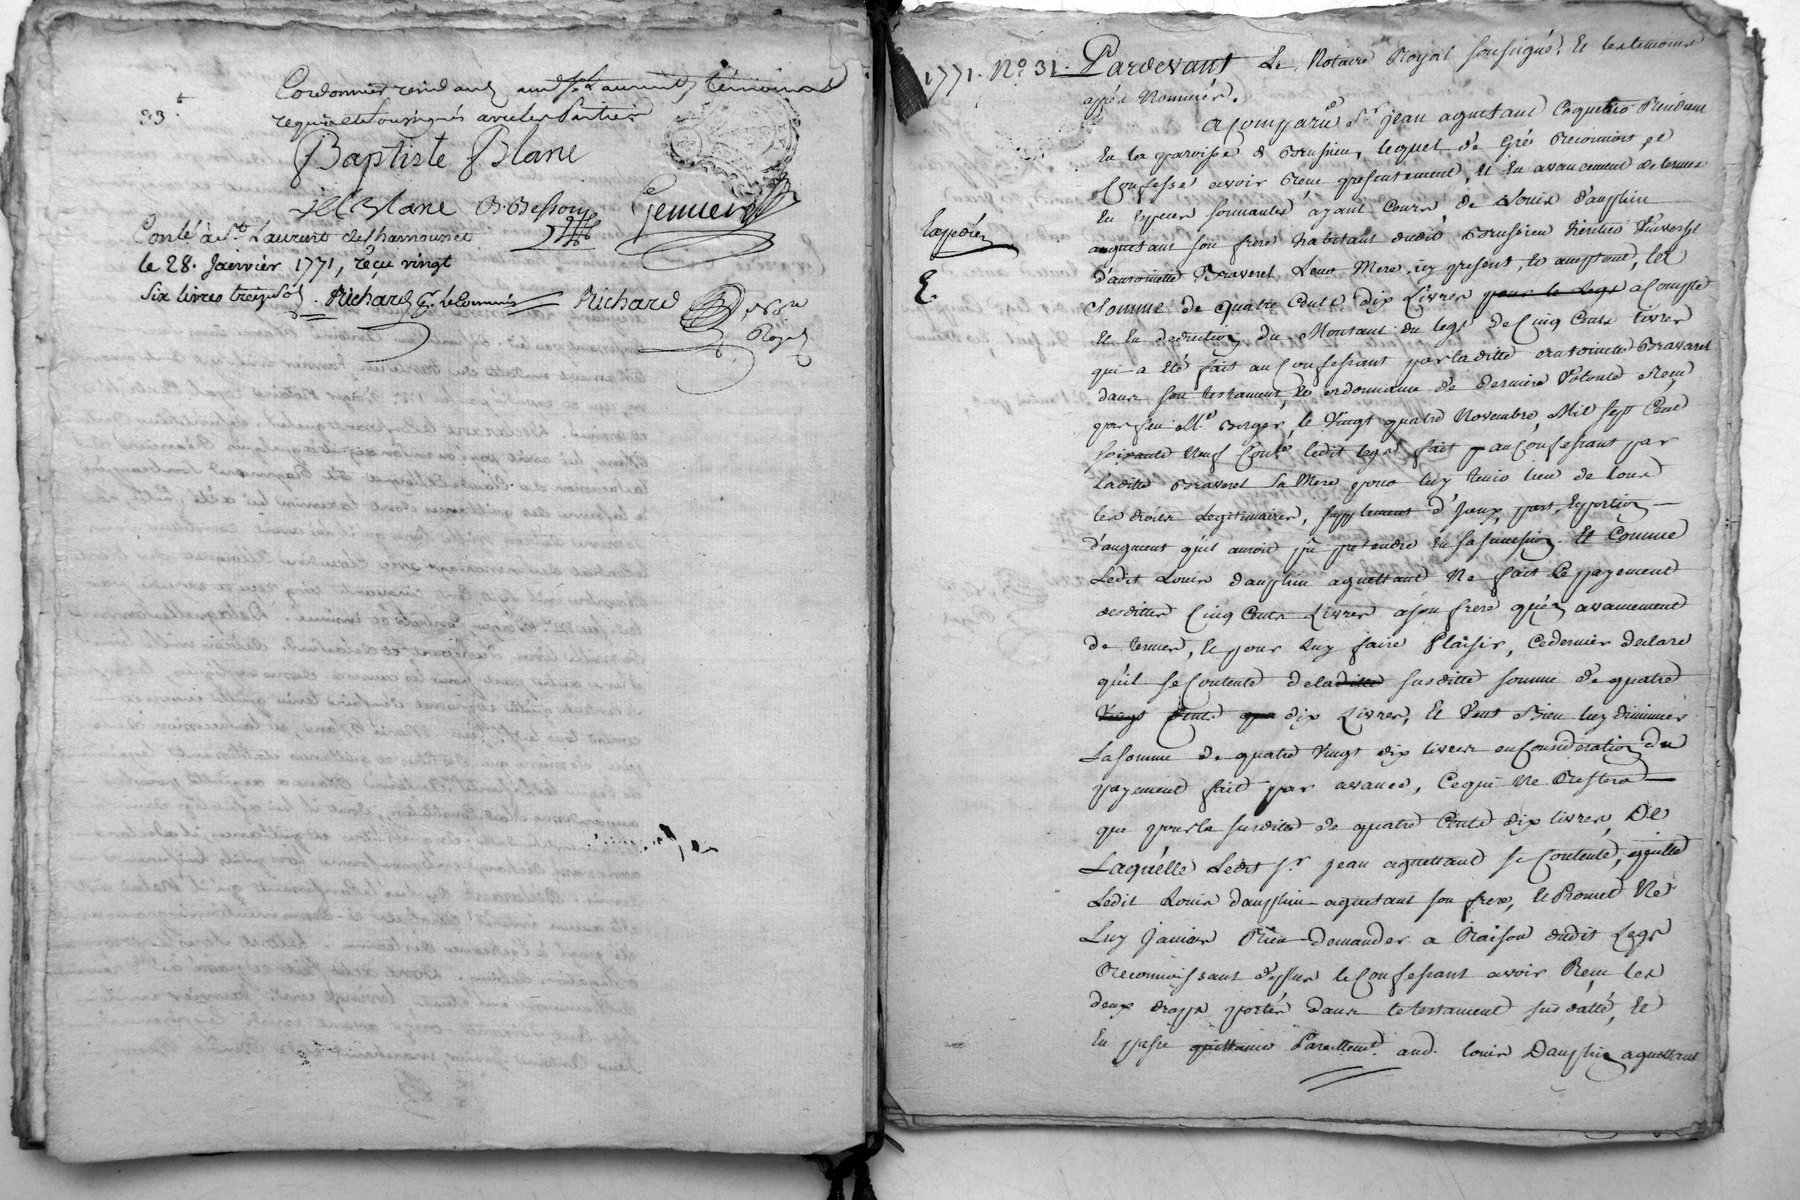 Cordonnier residant audt St Laurent, témoins
33t
requis et soussignés avec les parties
Baptiste Blanc
Blanc B. Bessony
Conlé à St Laurent de Chamousset
le 28. Janvier 1771, reçu vingt
six livres treize sols. Richard Richard
Royal
1771. No 31. Pardevant Le Notaire Royal soussigné, Et les temoins
après Nommés.
a Comparu Sr jean aguetant Coquetier Residant
En la paroisse de Brusieu, lequel de Gré Reconnoit et
Confessé avoir Reçu presentement, Et En avancement de termes
En Especes sonnantes ayant Cours de Louis Dauphin
aguetant son frere habitant dudit Brusieu héritier Universel
d'antoinette Braveret Leur Mere, icy present, et acceptant, la
Expédiée
E.
Somme de quatre Cents dix Livres pour le Legs a Compte
Et En deduction du Montant du legs de Cinq Cents livres
qui a Eté fait au Confessant par laditte antoinette Braveret
dans son testament, Et ordonnance de derniere Volonté Reçu
par feu Me Berger, le Vingt quatre Novembre Mil Sept Cent
soixante Neuf Conlé ledit legs fait pau Confessant par
Laditte Braveret sa Mere pour luy tenir lieu de tous
les droits Legitimaires, supplement d'yceux, part, Et portion
d'augment qu'il auroit pû pretendre En sa succession. Et Comme
Ledit Louis dauphin aguettant Ne fait Le payement
desdittes Cinq Cents Livres a son frere qu'en avancement
de termes, Et pour Luy faire Plaisir, Ce dernier declare
qu'il se Contente de laditte susditte somme de quatre
Vingt Cents dix Livres, Et Veut Bien luy diminuer
La somme de quatre Vingt dix livres en Consideration du
payement fait par avance, Ce qui Ne Restera
que pour la susditte de quatre Cents dix livres, De
Laquelle Ledit Sr jean aguettant se Contente, quitte
Ledit Louis dauphin aguetant son frere, Et Promet Ne
Luy Jamais Rien demander a Raison dudit Legs
Reconnoissant d'ailleurs le Confessant avoir Reçu les
deux draps portés dans le testament susdatté, Et
En passe quittance Pareillemt. aud. Louis Dauphin aguettant